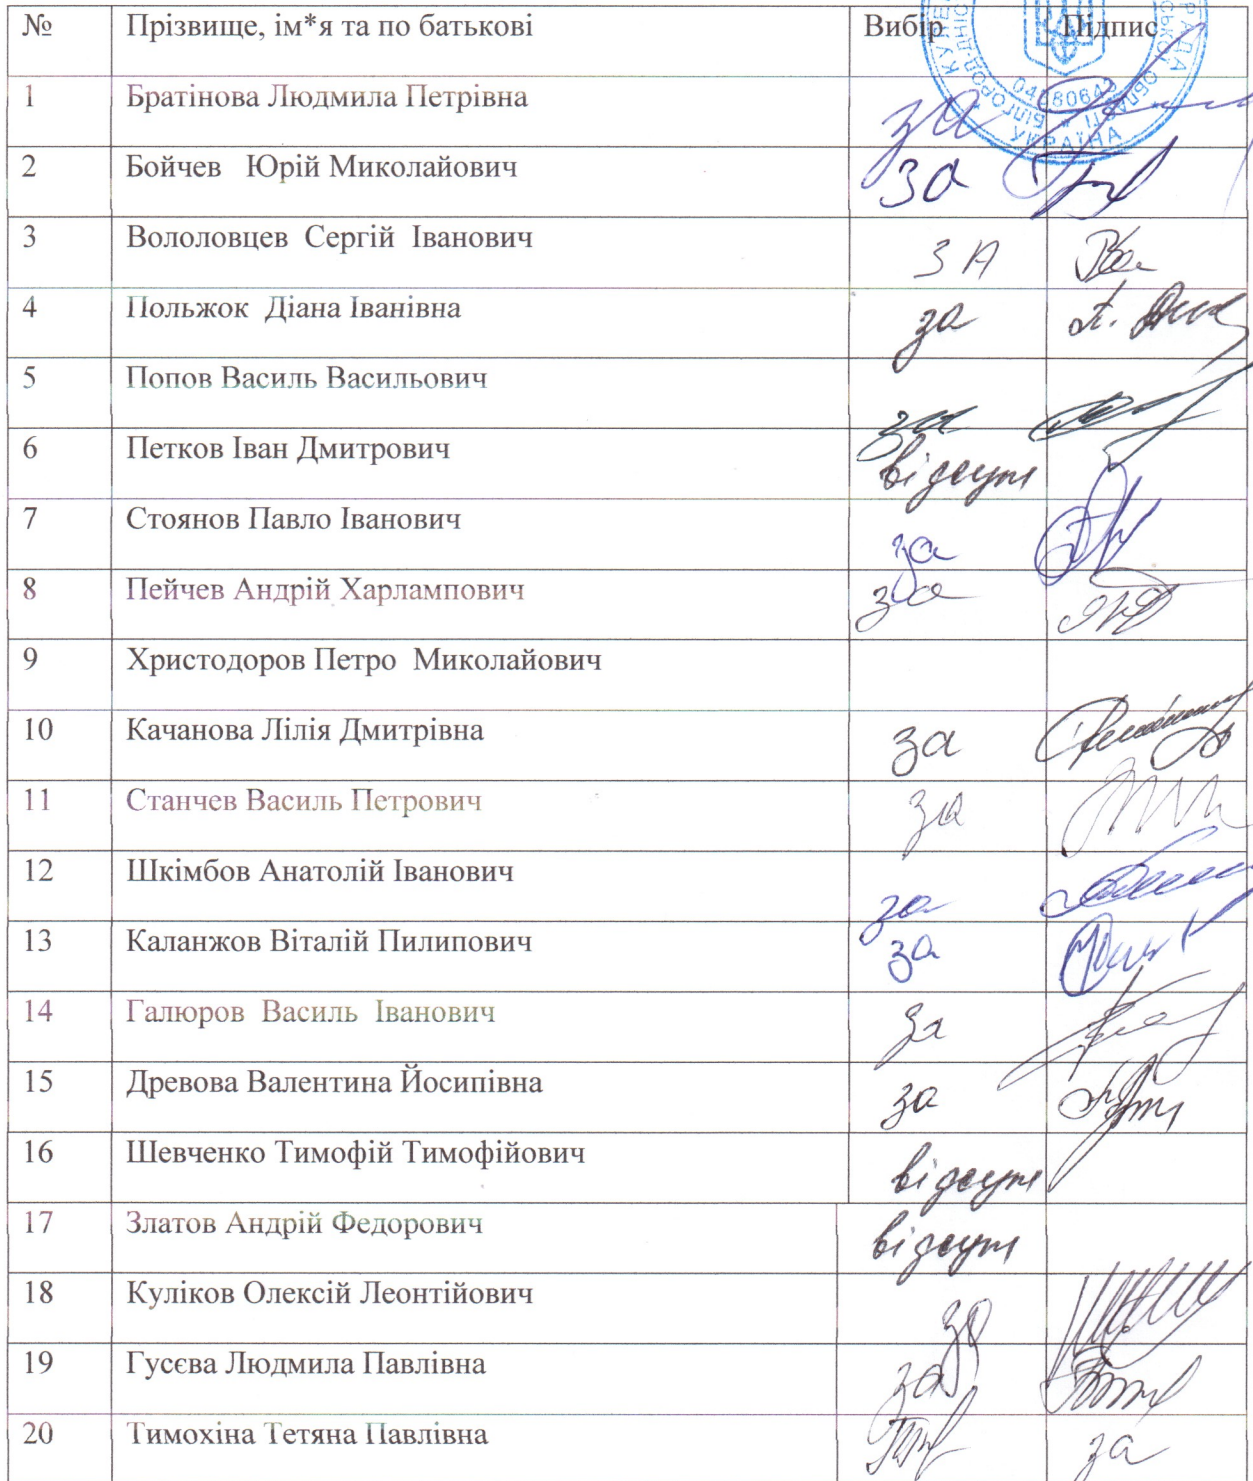 № Прізвище, ім*я та по батькові Вибір Підпис
04380642
УКРАЇНА
1 Братінова Людмила Петрівна за
2 Бойчев Юрій Миколайович за
3 Вололовцев Сергій Іванович ЗА
4 Польжок Діана Іванівна за
5 Попов Василь Васильович за
6 Петков Іван Дмитрович відсутн
7 Стоянов Павло Іванович за
8 Пейчев Андрій Харлампович за
9 Христодоров Петро Миколайович
10 Качанова Лілія Дмитрівна за
11 Станчев Василь Петрович за
12 Шкімбов Анатолій Іванович за
13 Каланжов Віталій Пилипович за
14 Галюров Василь Іванович за
15 Древова Валентина Йосипівна за
16 Шевченко Тимофій Тимофійович відсутн
17 Златов Андрій Федорович відсутн
18 Куліков Олексій Леонтійович за
19 Гусєва Людмила Павлівна за
20 Тимохіна Тетяна Павлівна за